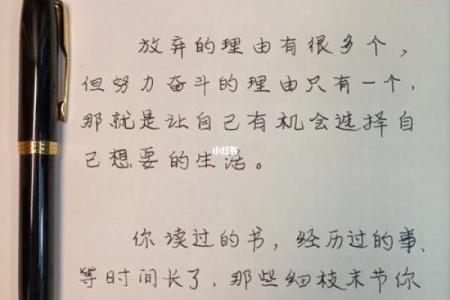 放弃的理由有很多个，
但努力奋斗的理由只有一个，
那就是让自己有机会选择自
己想要的生活。
小红书
你读过的书，经历过的事，
等时间长了，那些细枝末节你